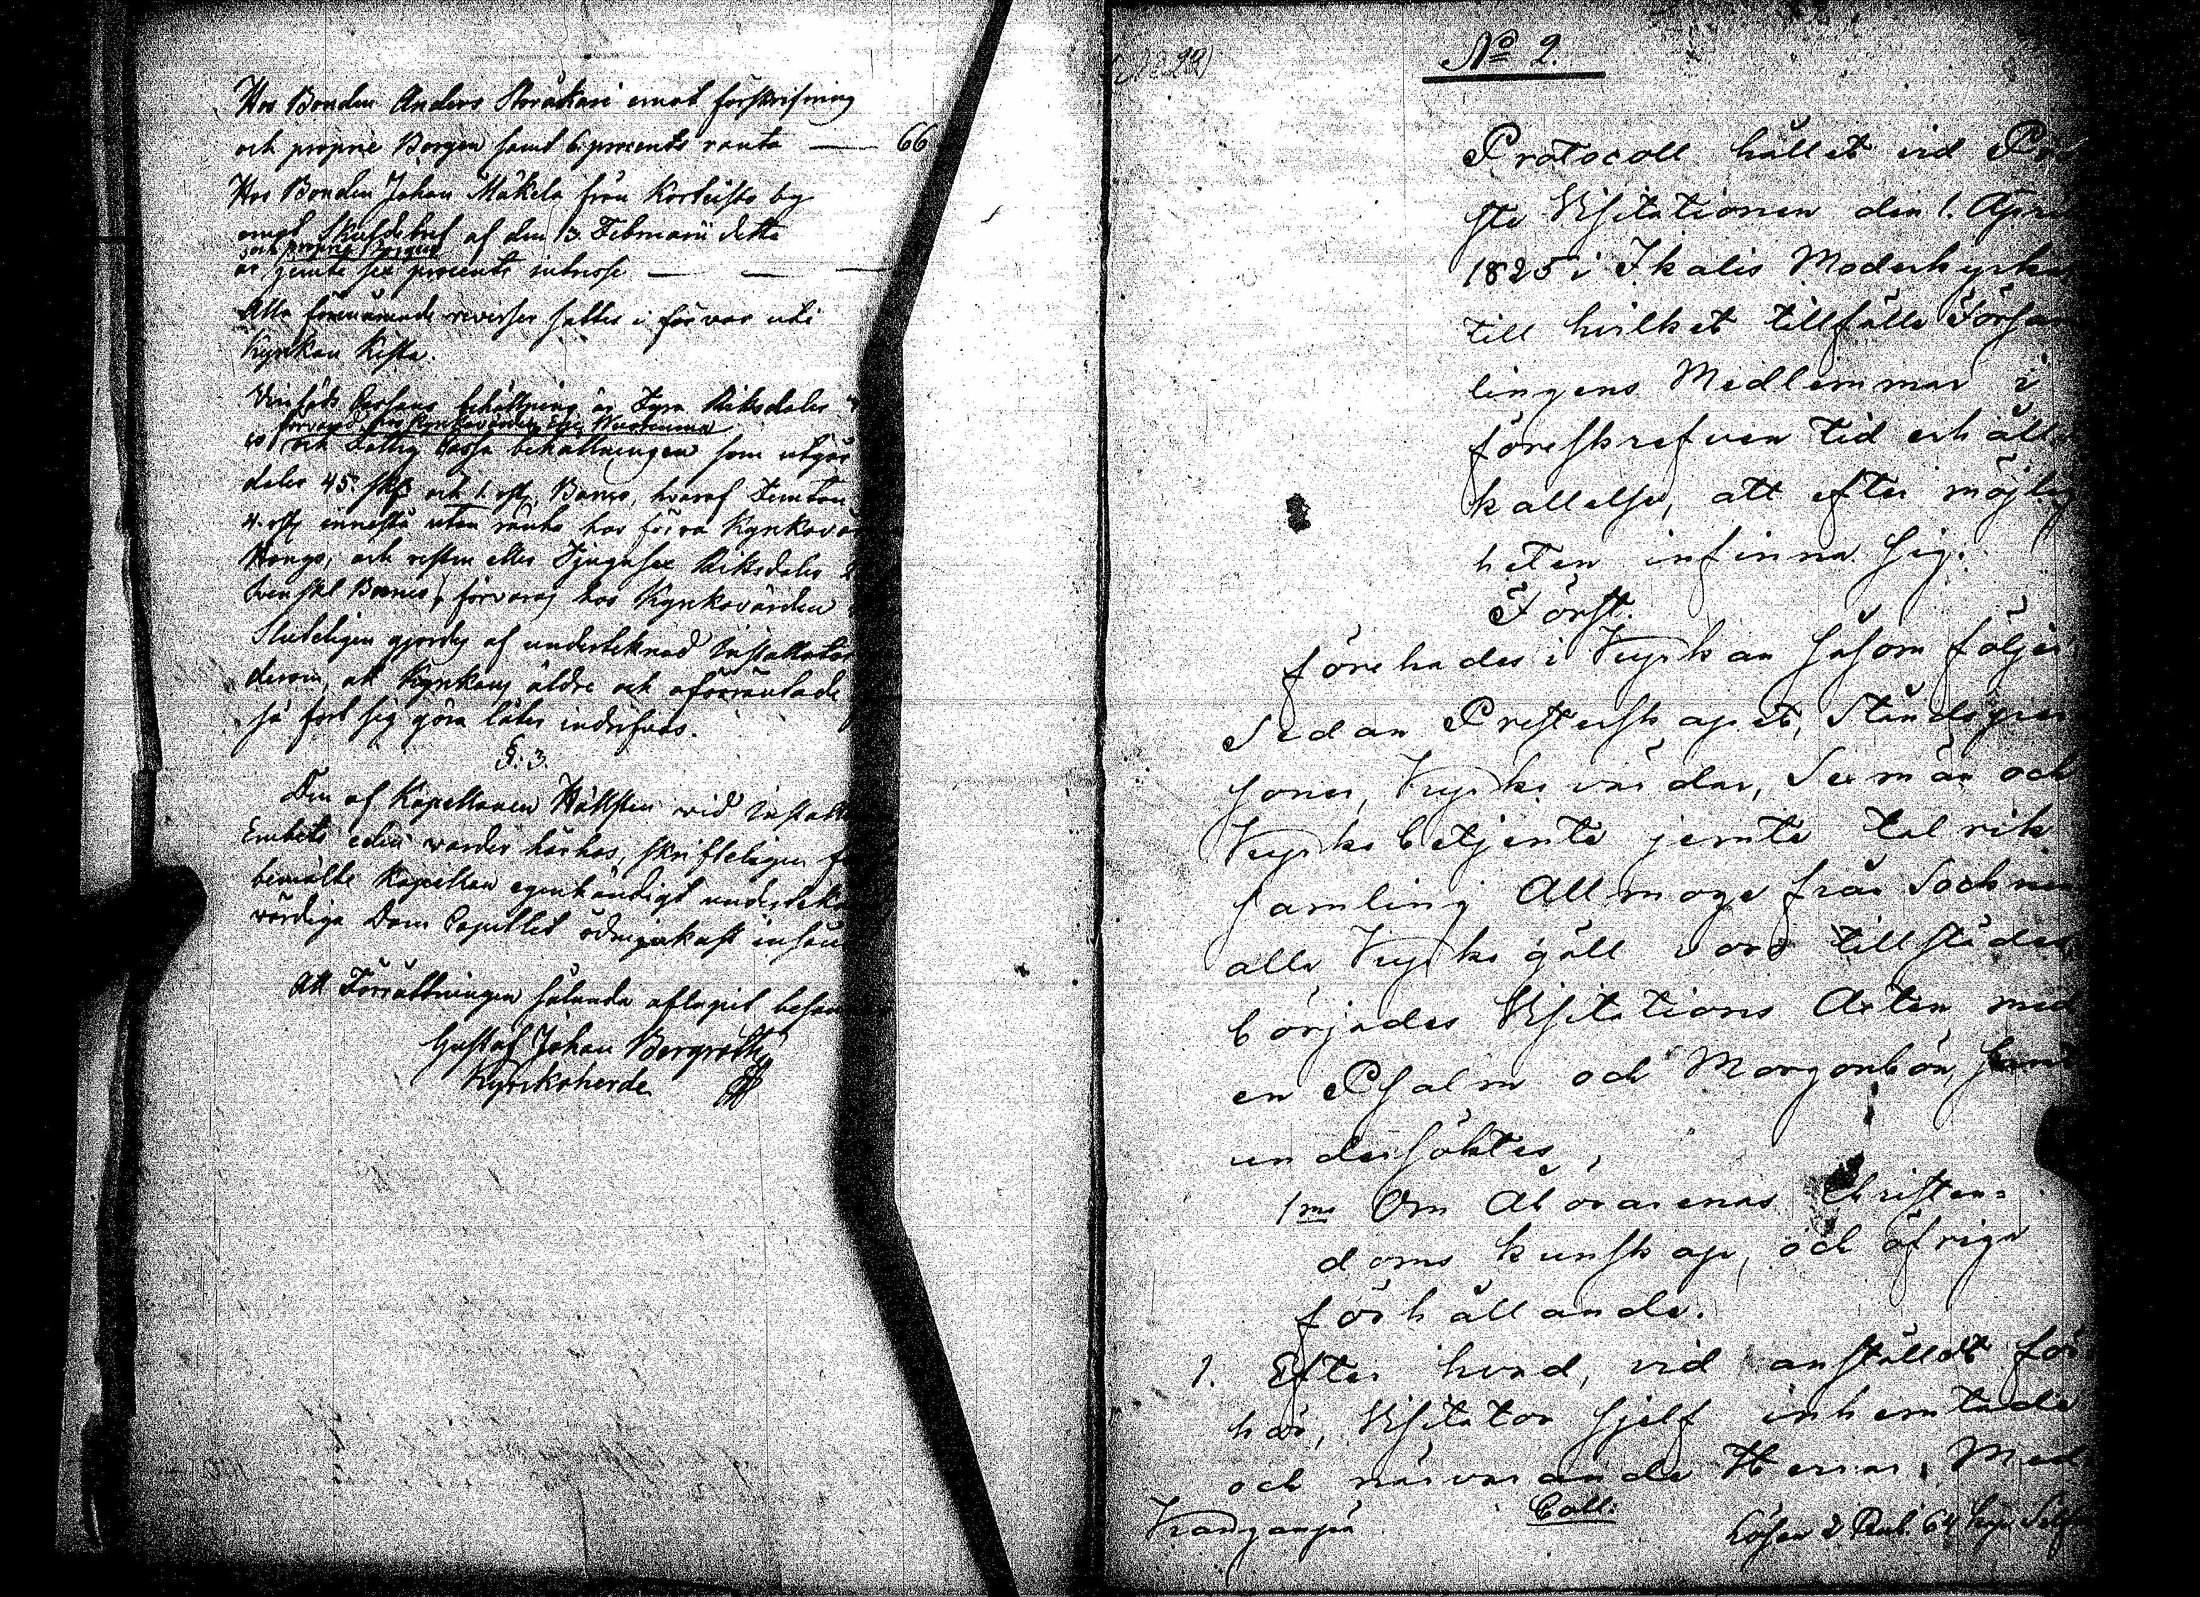 Hos Bonden Anders emot förskrifning
och proprie Borgen samt 6. procents ranta — 66
Hos Bonden Johan Mäkelä från Korteisto by
emot Skuldebref af den 13. Februarii detta
och proprie Borgen
år jemte sex procents intresse — — —
Alla förenämnde reverser sattes i förvar uti
Kyrkan Kista.
behållning är Fyra Riksdaler
förvarad hos Kyrkovärden
och Fattig Cassa behållningen som utgör
daler 45 sk. och 1. rst. Banco, hvaraf Femton
4. rst. innestå utan ränta hos förra Kyrkovär
Hongo, och resten eller Tjugusex Riksdaler
Svenskt Banco, förvaras hos Kyrkovärden
Sluteligen gjordes af undertecknad Installator
derom, att Kyrkans äldre och oförräntade
så fort sig göra låter indrifvas.
§. 3.
Den af Kapellanen Hällsten vid Installa
Embets eden varder härhos, skrifteligen
bemälte Kapellan egenhändigt underteckna
vördiga Dom Capitlet ödmjukast insänd
Att Förrättningen sålunda aflupit
Gustaf Johan Bergroth
Kyrkoherde
No 2.
Protocoll hållet vid Pro
ste Visitationen den 1. April
1825 i Ikalis Moderkyrka
till hvilket tillfälle Försam
lingens Medlemmar i
föreskrefven tid erhållit
kallelse, att efter möjlig
heten infinna sig.
Först.
förehades i Kyrkan såsom följer.
Sedan Presterskapet, Ståndsper
soner, Kyrko värdar, Sexmän och
Kyrko betjente jemte talrik
samling Allmoge från Socknen
alla Kyrko gäll voro tillstädes
börjades Visitations Acten med
en Psalm och Morgonbön, samt
undersöktes,
1mo Om Åhörarenas Christen=
doms kunskap, och öfriga
förhållande.
1. Efter hvad, vid anstäldt för
hör, Visitator sjelf inhemtade
och närvarande Herrar, Med
Kangaspä Coll: Lösen 2 Rub. 64 kop. Silfver